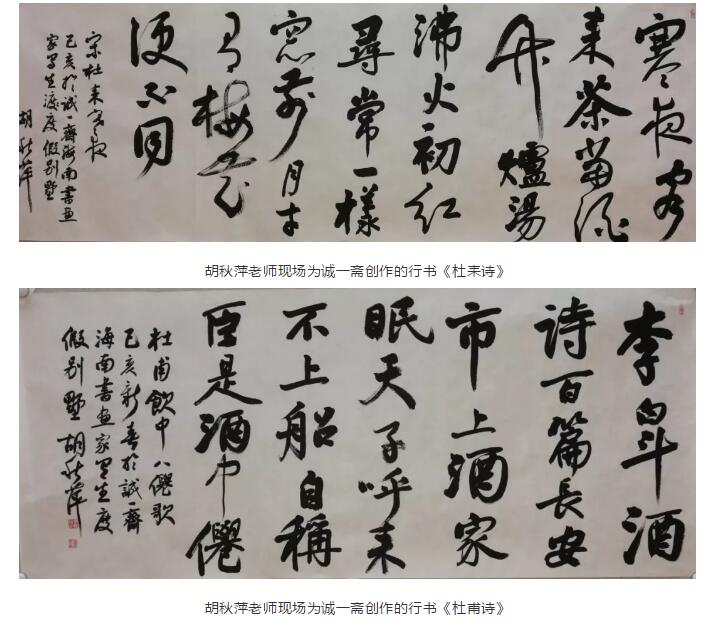 寒夜客
来茶當酒
竹爐湯
沸火初红
尋常一樣
窓前月才
有梅花
便不同
宋杜耒寒夜
己亥於诚一齋海南書画
家写生渡度假别墅
胡秋萍
胡秋萍老师现场为诚一斋创作的行书《杜耒诗》
李白斗酒
诗百篇長安
市上酒家
眠天子呼来
不上船自稱
臣是酒中僊
杜甫飲中八僊歌
己亥新春於誠一齋
海南書画家写生度
假别墅胡秋萍
胡秋萍老师现场为诚一斋创作的行书《杜甫诗》